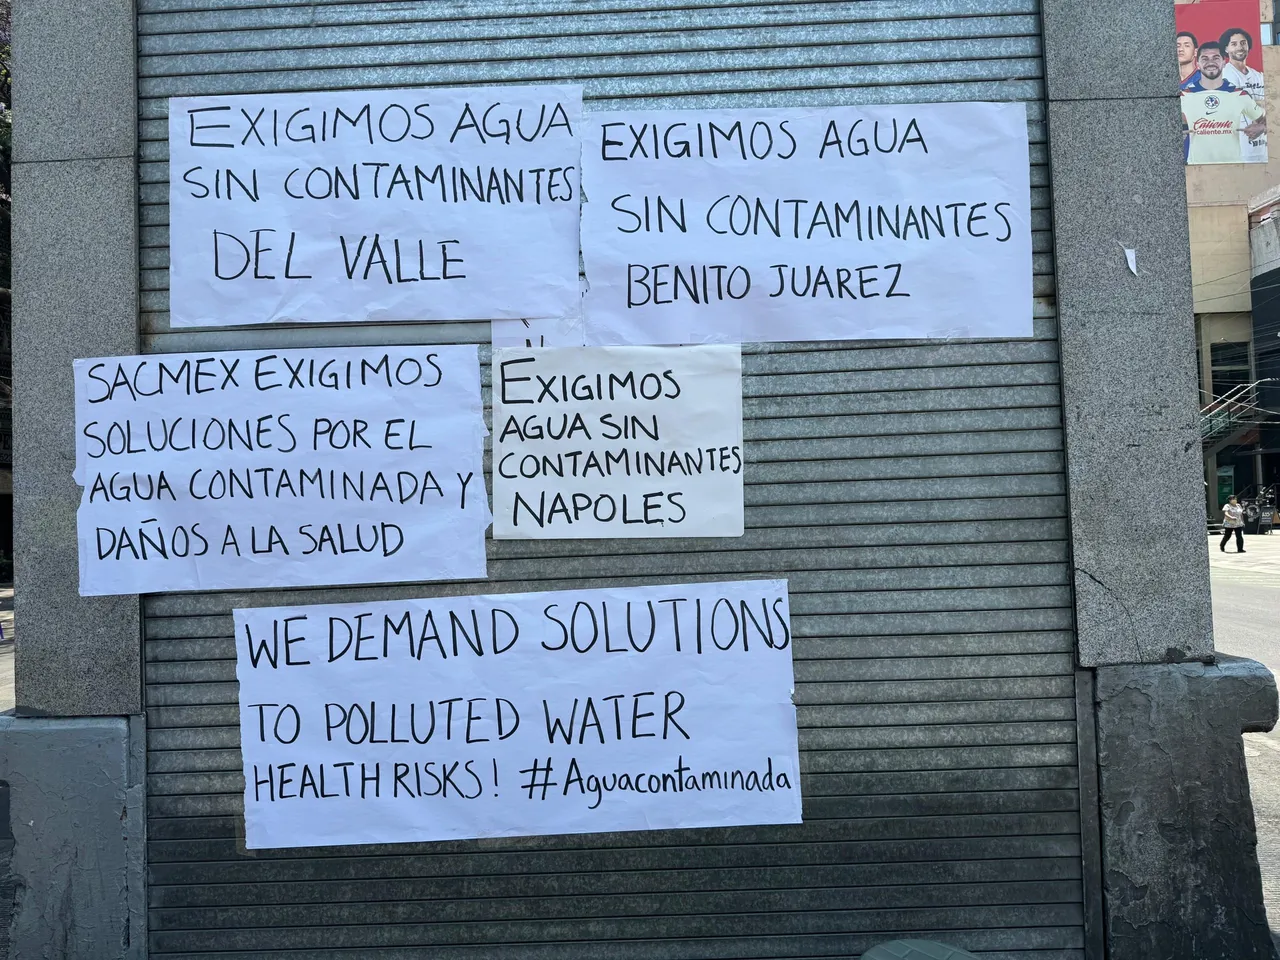 EXIGIMOS AGUA
SIN CONTAMINANTES
DEL VALLE
EXIGIMOS AGUA
SIN CONTAMINANTES
BENITO JUAREZ
SACMEX EXIGIMOS
SOLUCIONES POR EL
AGUA CONTAMINADA Y
DAÑOS A LA SALUD
EXIGIMOS
AGUA SIN
CONTAMINANTES
NAPOLES
WE DEMAND SOLUTIONS
TO POLLUTED WATER
HEALTH RISKS! #Aguacontaminada
Caliente
caliente.mx